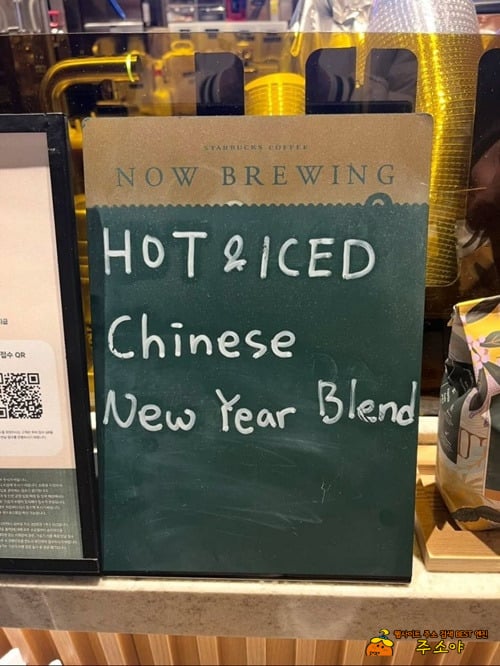 STARBUCKS COFFEE
NOW BREWING
HOT & ICED
Chinese
New Year Blend
접수 QR
웹사이트 주소 검색 BEST 엔진
주소야